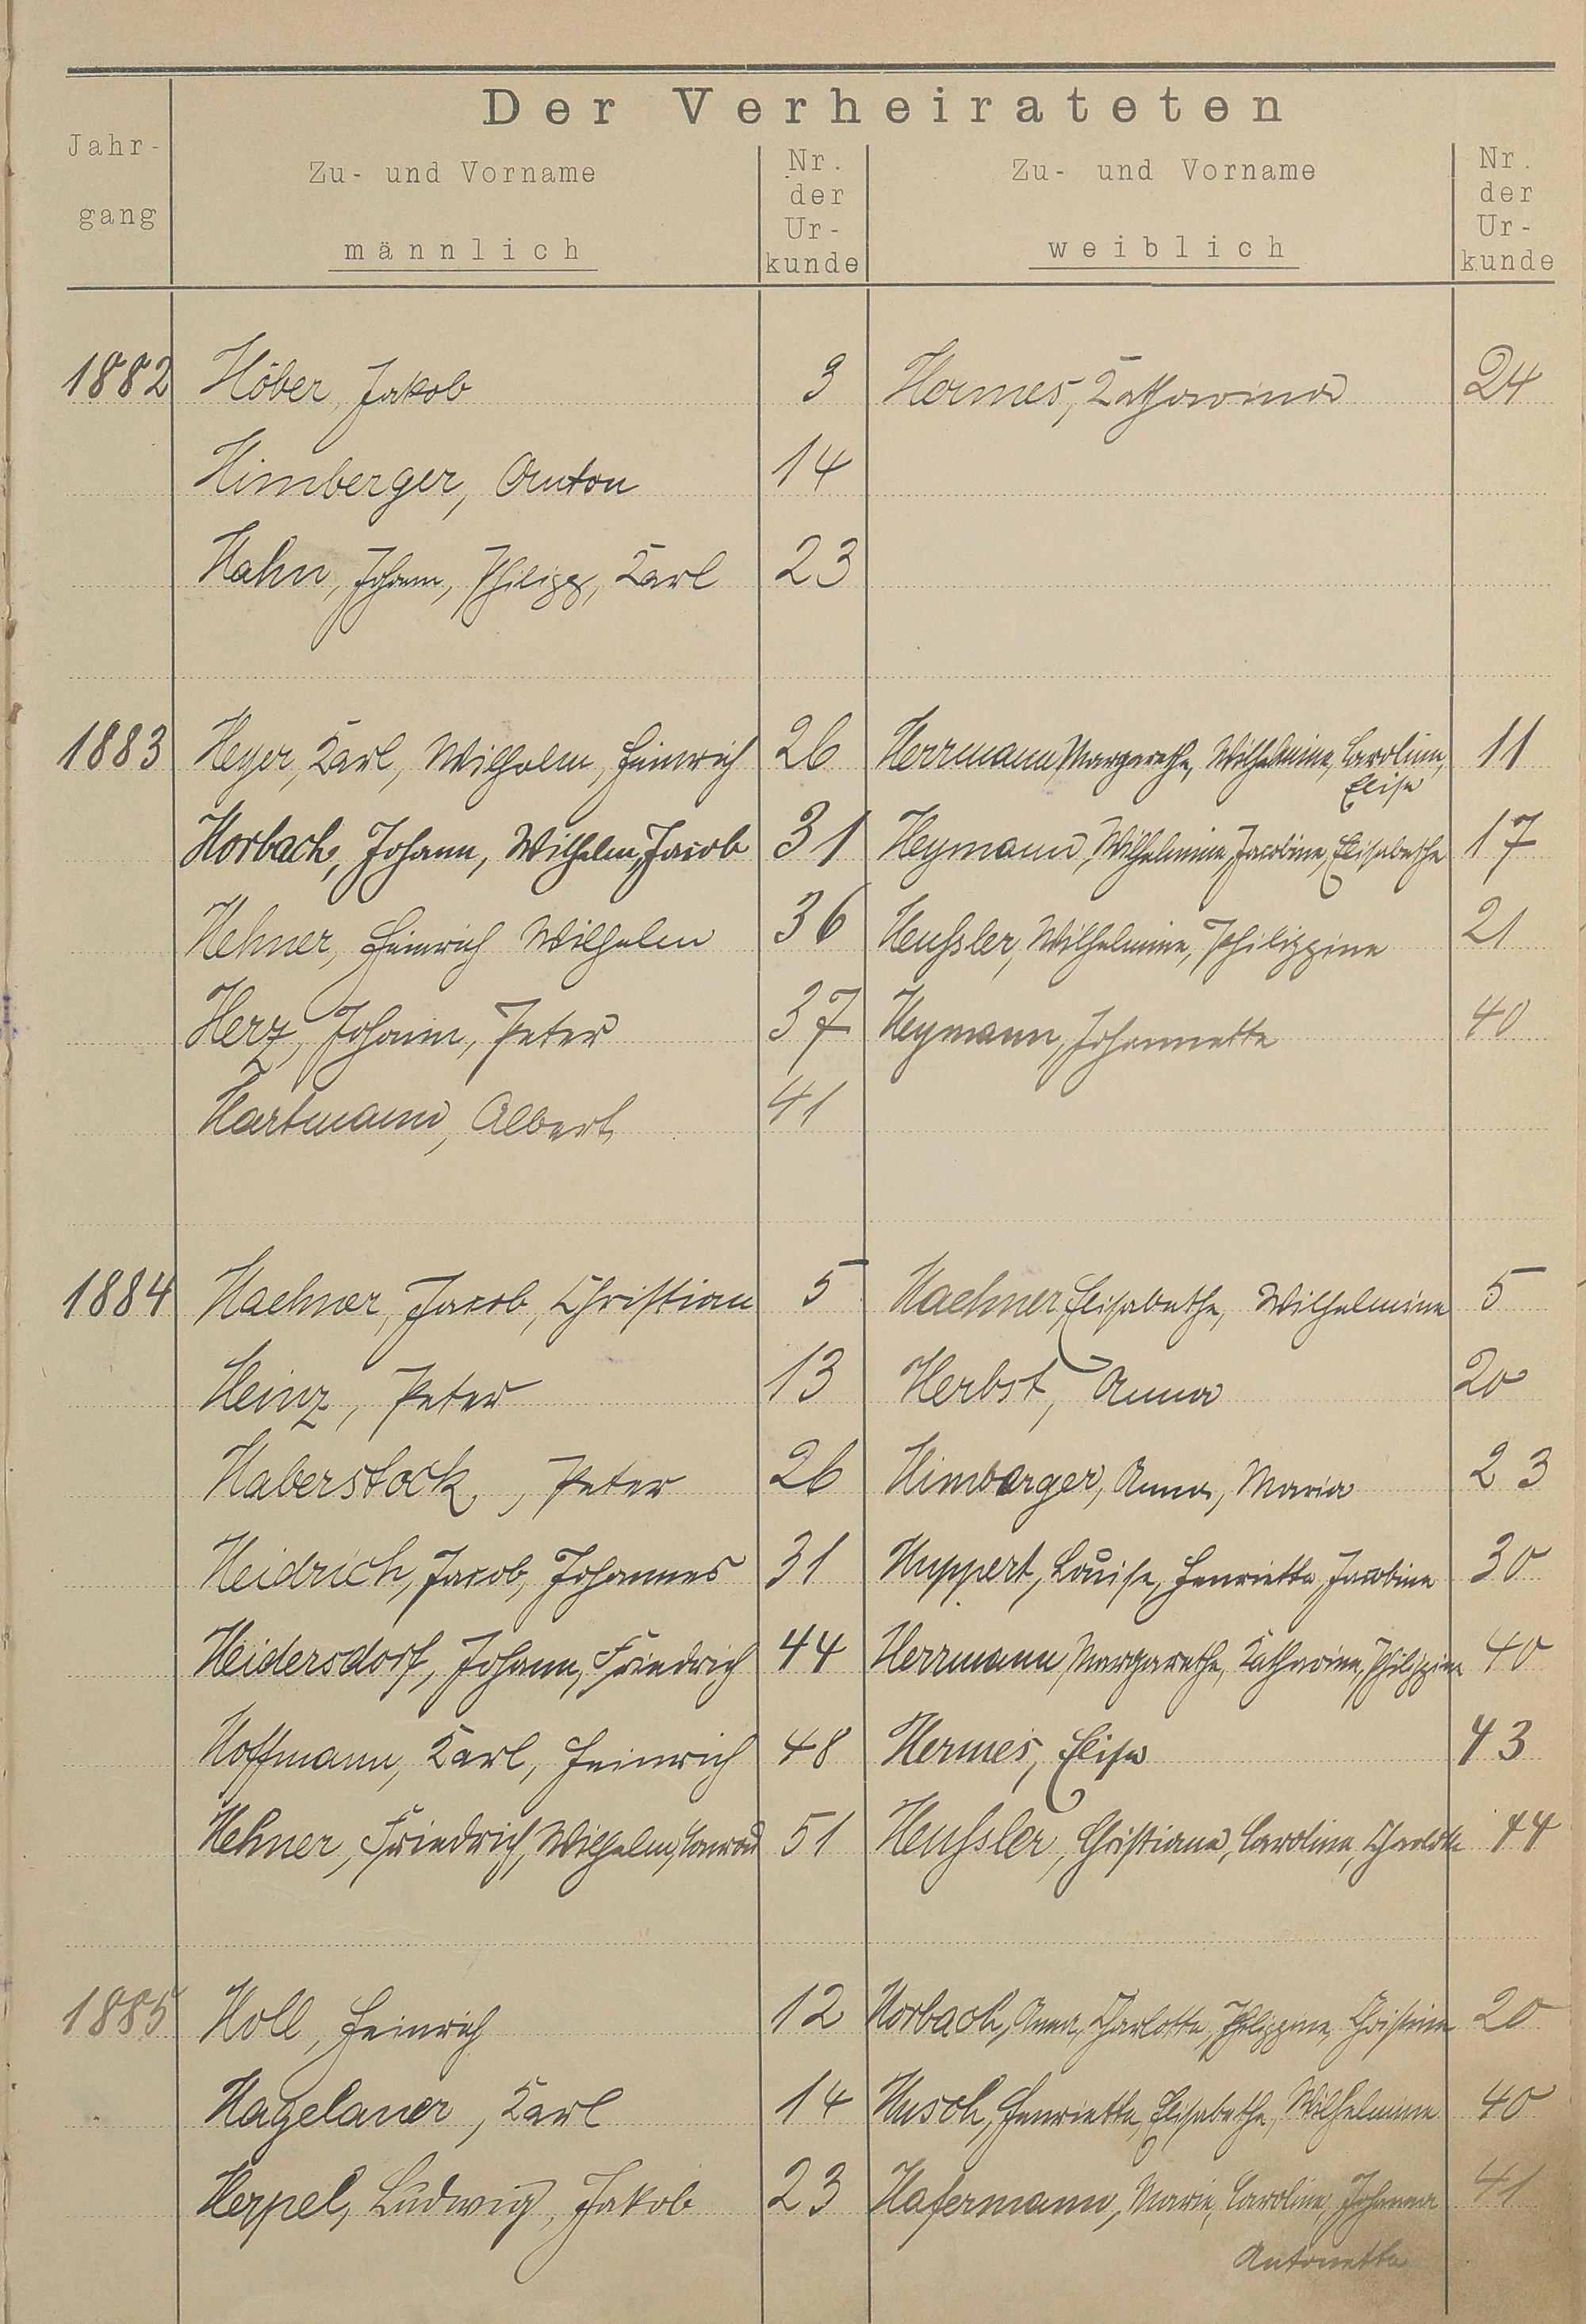 Der Verheirateten
Jahr-
gang
Zu- und Vorname
männlich
Nr.
der
Ur-
kunde
Zu- und Vorname
weiblich
Nr.
der
Ur-
kunde
1882 Höber, Jakob 3 Hermes, Katharina 24
Himberger, Anton 14
Hahn, Johann, Philipp, Karl 23
1883 Heyer, Karl, Wilhelm, Heinrich 26 Herrmann, Margarethe, Wilhelmine, Caroline, 11
Elise
Horbach, Johann, Wilhelm, Jacob 31 Heymann, Wilhelmine, Jacobine, Elisabethe 17
Hehner, Heinrich Wilhelm 36 Heußler, Wilhelmine, Philippine 21
Herz, Johann, Peter 37 Heymann, Johannette 40
Hartmann, Albert 41
1884 Haehner, Jacob, Christian 5 Haehner, Elisabethe, Wilhelmine 5
Heinz, Peter 13 Herbst, Anna 20
Haberstock, Peter 26 Himberger, Anna, Maria 23
Heidrich, Jacob, Johannes 31 Huppert, Louise, Henriette, Jacobine 30
Heidersdorf, Johann, Friedrich 44 Herrmann, Margarethe, Katharine, Philippine 40
Hoffmann, Karl, Heinrich 48 Hermes, Elise 43
Hehner, Friedrich, Wilhelm, Conrad 51 Heußler, Christiane, Caroline, Charlotte 44
1885 Holl, Heinrich 12 Horbach, Anna, Charlotte, Philippine, Christine 20
Hagelauer, Karl 14 Husch, Henriette, Elisabethe, Wilhelmine 40
Herpel, Ludwig, Jakob 23 Hafermann, Marie, Caroline, Johanna 41
Antonette